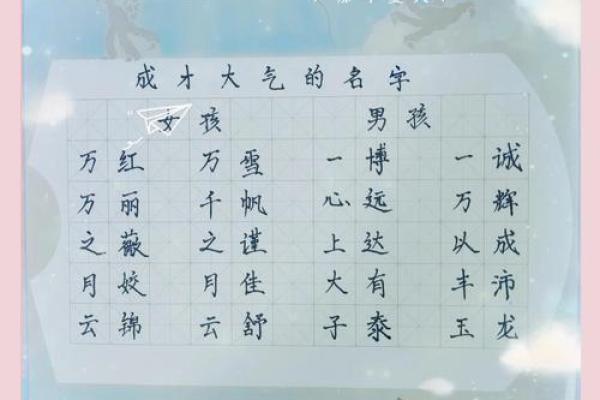 成才大气的名字
女孩 男孩
万红 万雪 一博 一诚
万丽 千帆 心远 万辉
之薇 之谨 上达 以成
月姣 月佳 大有 丰沛
云锦 云舒 子泰 玉龙